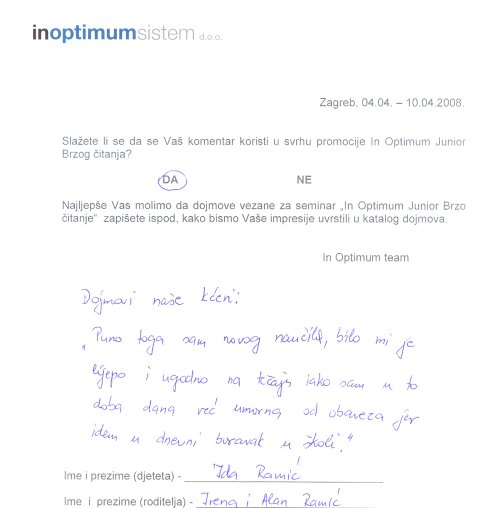 inoptimumsistem d.o.o.
Zagreb, 04.04. – 10.04.2008.
Slažete li se da se Vaš komentar koristi u svrhu promocije In Optimum Junior
Brzog čitanja?
DA NE
Najljepše Vas molimo da dojmove vezane za seminar „In Optimum Junior Brzo
čitanje“ zapišete ispod, kako bismo Vaše impresije uvrstili u katalog dojmova.
In Optimum team
Dojmovi naše kćeri:
„Puno toga sam novog naučila, bilo mi je
lijepo i ugodno na tečaju iako sam u to
doba dana već umorna od obaveza jer
idem u dnevni boravak u školi.“
Ime i prezime (djeteta) - Ida Ramić
Ime i prezime (roditelja) - Irena i Alan Ramić